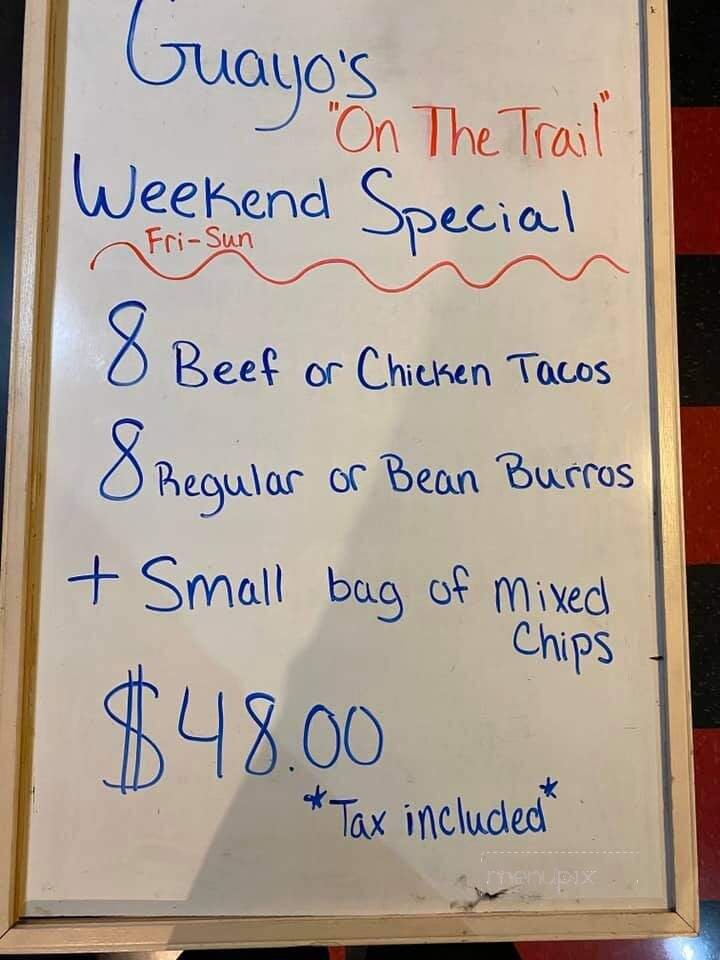 Guayo's
"On The Trail"
Weekend Special
Fri-Sun
8 Beef or Chicken Tacos
8 Regular or Bean Burros
+ Small bag of Mixed
Chips
$48.00
*Tax included*
menupix